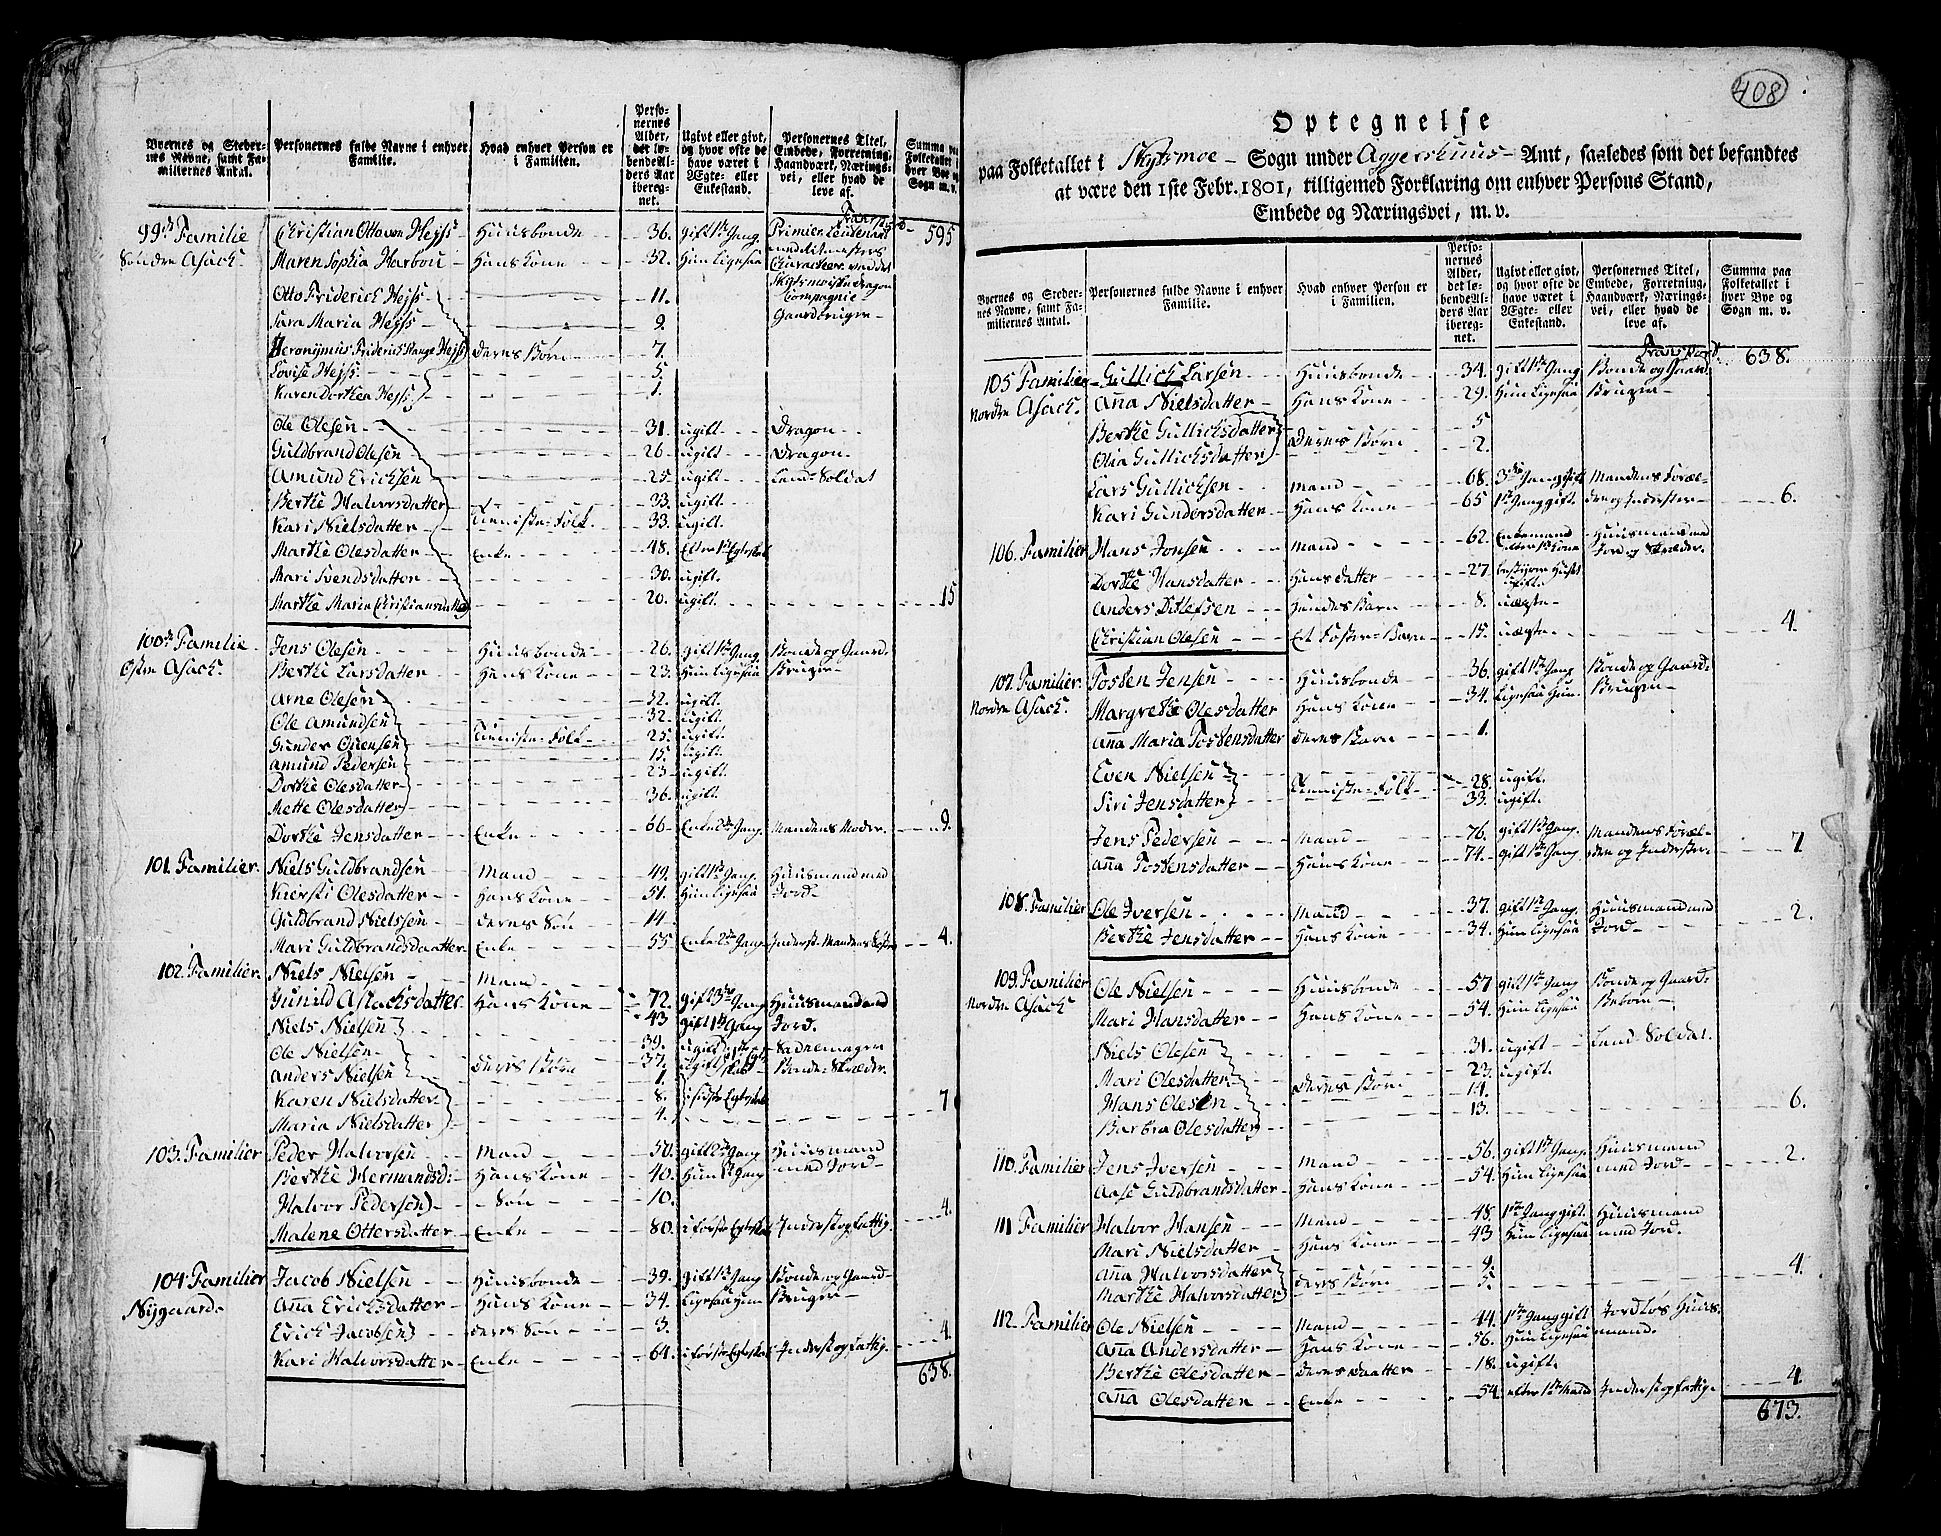 Byernes og Stedernes Navne, samt Familiernes Antal.
Personernes fulde Navne i enhver Familie.
Hvad enhver Person er i Familien.
Personernes Alder, det løbende Alders Aar iberegnet.
Ugivt eller givt, og hvor ofte de have været i Ægte- eller Enkestand.
Personernes Titel, Embede, Forretning, Haandværk, Næringsvei, eller hvad de leve af.
Summa paa Folketallet i hver Bye og Sogn m. v.
Transport 595
99de Familie Christian Otto von Hejss Huusbonde 36. gift 1ste Gang Premier Leutenant
Søndre Asach. Maren Sophia Harbou Hans Kone 32. Hun ligesaa med Ritmesters
Caracteer ved det
Otto Friderich Hejss 11. Skydsmoiske Dragon
Compagnie
Sara Maria Hejss 9. Gaardbruger
Heronymus Friderich Stange Hejss Deres Børn 7.
Lovise Hejss 5.
Karen Dorthea Hejss 1.
Ole Olesen 31. ugift Dragon
Guldbrand Olesen 26. ugift Dragon
Amund Erichsen 25. ugift Land-Soldat
Berthe Halvorsdatter 33. ugift
Kari Nielsdatter Tienniste-Folk 33. ugift
Marthe Olesdatter Enke 48. Efter 1ste Egteskab
Mari Svendsdatter 30. ugift
Marthe Maria Christiansdatter 20. ugift 15
100de Familie Jens Olesen Huusbonde 26. gift 1ste Gang Bonde og Gaard-
Østre Asach. Berthe Larsdatter Hans Kone 23. Hun ligesaa Bruger
Arne Olesen 32. ugift
Ole Amundsen 32. ugift
Gunder Evensen Tienniste-Folk 25. ugift
Amund Pedersen 15. ugift
Dorthe Olesdatter 23 ugift
Mette Olesdatter 36. ugift
Dorthe Jensdatter Enke 66 Enke 2den Gang. Mandens Moder. 9.
101. Familier. Niels Guldbrandsen Mand 49. gift 1ste Gang. Huusmand med
Kiersti Olesdatter Hans Kone 51. Hun ligesaa Jord
Guldbrand Nielssen Deres Søn 14.
Mari Guldbrandsdaatter Enke 55 Enke 2den Gang Inderst. Mandens Søster 4.
102. Familier. Niels Nielsen Mand
Gunild Aslachsdatter Hans Kone 72. gift 3die Gang Huusmand med
Niels Nielsen 43 gift 1ste Gang Jord.
Ole Nielsen 39. ugift Sadnemager
Anders Nielsen Deres Børn 37. ugift Bonde-Skræder.
1.
Karen Nielsdatter 8. i sidste Egteskab
Maria Nielsdatter 4. 7
103. Familier Peder Halvorsen Mand 50. gift 2den Gang Huusmand
Berthe Hermundsd: Hans Kone 40. Hun 1ste Gang med Jord
Halvor Pedersen Søn 10.
Malene Ottersdatter Enke 80. i første Egteskab Inderst og fattig 4.
104 Familier Jacob Nielsen Huusbonde 39. gift 1ste Gang Bonde og Gaard-
Nygaard Anna Erichsdatter Hans Kone 34. Ligesaa hun Bruger
Erich Jacobsen Deres Søn 3.
Kari Halvorsdatter Enke 64. i første Egteskab Inderst og fattig. 4.
638.
408
Optegnelse
paa Folketallet i Skydsmoe Sogn under Aggershuus Amt, saaledes som det befandtes
at være den 1ste Febr. 1801, tilligemed Forklaring om enhver Persons Stand,
Embede og Næringsvei, m. v.
Byernes og Stedernes Navne, samt Familiernes Antal.
Personernes fulde Navne i enhver Familie.
Hvad enhver Person er i Familien.
Personernes Alder, det løbende Alders Aar iberegnet.
Ugivt eller givt, og hvor ofte de have været i Ægte- eller Enkestand.
Personernes Titel, Embede, Forretning, Haandværk, Næringsvei, eller hvad de leve af.
Summa paa Folketallet i hver Bye og Sogn m. v.
Transport. 638.
105 Familier Gullich Larsen Huusbonde 34. gift 1ste Gang Bonde og Gaard
Nordre Asach. Anna Nielsdatter Hans Kone 29. Hun ligesaa Bruger
Berthe Gullichsdatter 5
Olia Gullichsdatter Deres Børn 2.
Lars Gullichsen Mand 68. 3die Gang gift Mandens Foræl-
Kari Gundersdatter Hans Kone 65 1ste Gang gift. dre og Inderster 6.
106. Familier Hans Jonsen Mand 62. Enkemand Huusmand med
efter 1ste Kone Jord og Skræder.
Dorthe Hansdatter Hans datter 27. bestyrer Huset
ugift.
Anders Ditlefsen Hendes Barn 8. uægte
Christian Olesen Et Foster-Barn 15. uægte 4.
107. Familier. Tosten Jensen Huusbonde 36. gift 1ste Gang Bonde og Gaard-
Nordre Asach. Margrethe Olesdatter Hans Kone 34. Ligesaa Hun. Bruger
Anna Maria Tostensdatter Deres Barn 1.
Even Nielsen 28. ugift.
Siri Jensdatter Tienniste-Folk 33. ugift.
Jens Pedersen Mand 76. gift 1ste Gang. Mandens Foræl-
Anna Tostensdatter Hans Kone 74. gift 1ste Gang dre og Inderster 7
108. Familier Ole Iversen Mand 37. gift 1ste Gang. Huusmand med
Berthe Jensdatter Hans Kone 34. Hun ligesaa Jord 2.
109. Familier Ole Nielsen Huusbonde 57 gift 1ste Gang Bonde og Gaard
Nordre Asach Mari Hansdatter Hans Kone 54. Hun ligesaa Beboer
Niels Olesen 31. ugift Land-Soldat.
Mari Olesdatter 23. ugift.
Hans Olesen Deres Børn 14.
Barbra Olesdatter 13. 6.
110. Familier Jens Iversen Mand 56. gift 1ste Gang. Huusmand
Aase Guldbrandsdatter Hans Kone 54. Hun ligesaa med Jord 2.
111 Familier Halvor Hansen Mand 48. 1ste Gang gift. Huusmand
Mari Nielsdatter Hans Kone 43 Hun ligesaa med Jord.
Anna Halvorsdatter 9.
Marthe Halvorsdatter Deres Børn 5. 4.
112. Familier Ole Nielsen Mand 44. 1ste Gang gift Jordløs Huus-
Anna Andersdatter Hans Kone 56. Hun ligesaa mand.
Berthe Olesdatter Deres Daatter 18. ugift.
Anna Olesdatter Enke 54. efter 1ste Mand Inderst og fattig 4
673.